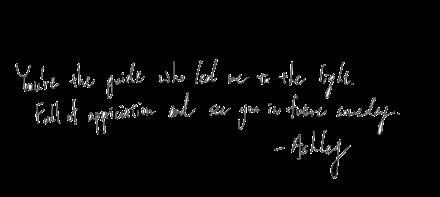 You're the guide who led me to the light.
Full of appreciation and see you in future someday.
- Ashley